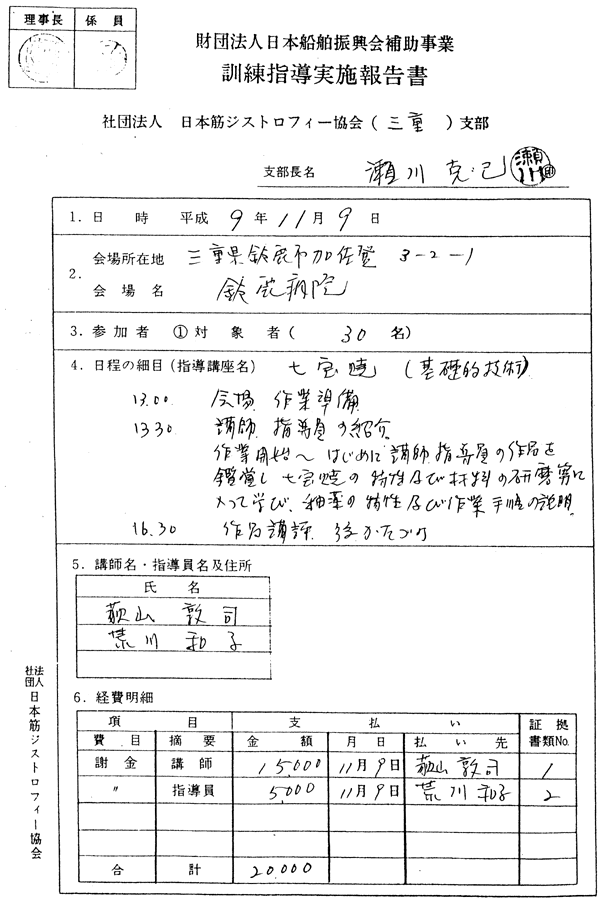 理事長 係員
財団法人日本船舶振興会補助事業
訓練指導実施報告書
社団法人 日本筋ジストロフィー協会(三重)支部
支部長名 瀬川克己 瀬川
1.日時 平成9年11月9日
2.会場所在地 三重県鈴鹿市加佐登 3-2-1
会場名 鈴鹿病院
3.参加者 ①対象者(30名)
4.日程の細目(指導講座名) 七宝焼 (基礎的技術)
13.00 会場 作業準備
13.30 講師 指導員の紹介
作業開始～はじめに講師指導員の作品を
鑑賞し七宝焼の特性及び材料の研磨等に
よって学び、釉薬の特性及び作業手順の説明
16.30 作品講評 かたづけ
5.講師名・指導員名及住所
氏名
萩山 敦司
荒川 和子
6.経費明細
項目 支払い 証拠書類No.
費目 摘要 金額 月日 払い先
謝金 講師 15,000 11月9日 萩山敦司 1
〃 指導員 5,000 11月9日 荒川和子 2
合計 20,000
社団法人 日本筋ジストロフィー協会